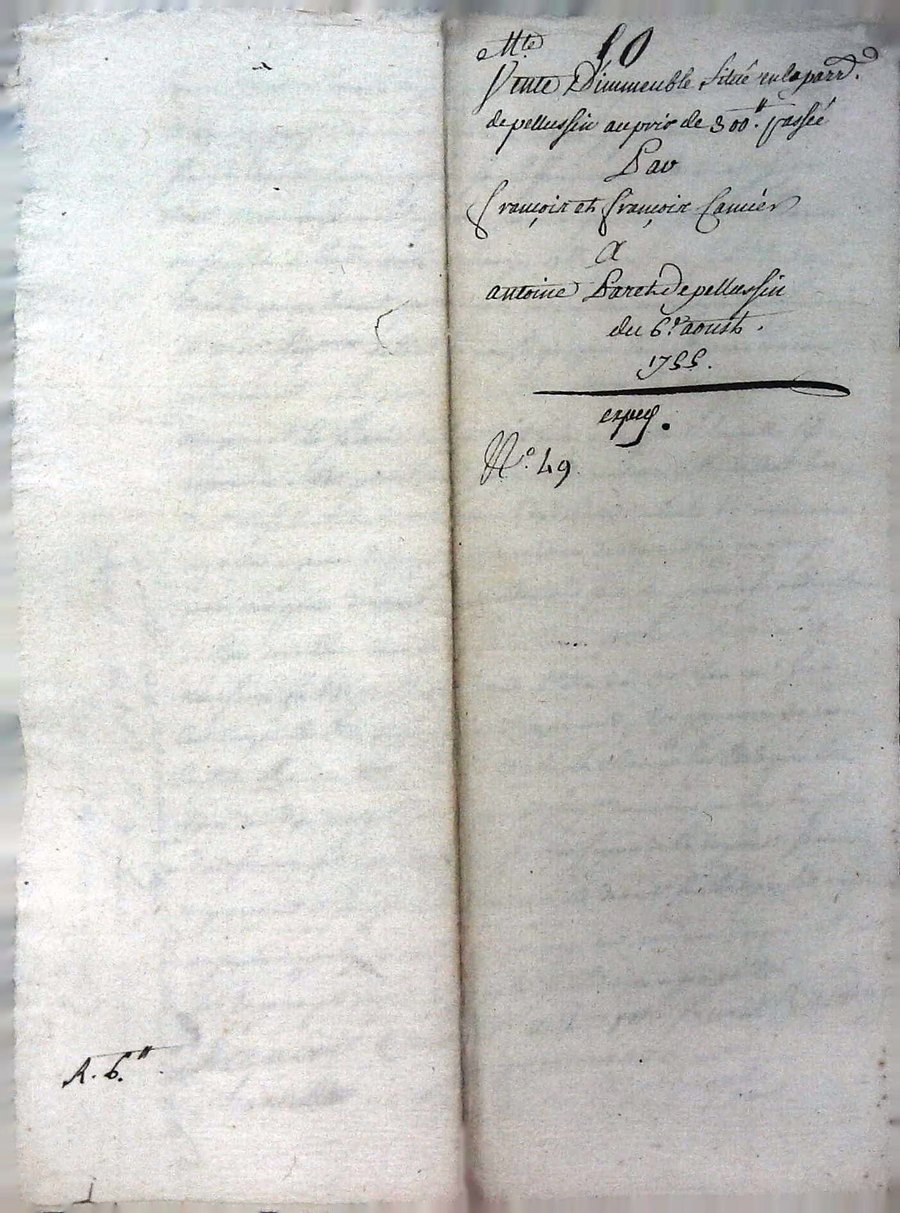 50
Vente d'immeuble situé en la parr.
de pellussin au prix de 300.tt passée
Par
françois et françois Camier
A
antoine Paret de pellussin
du 6.e aoust.
1755.
expeq.
N.o 49
R. 6.tt